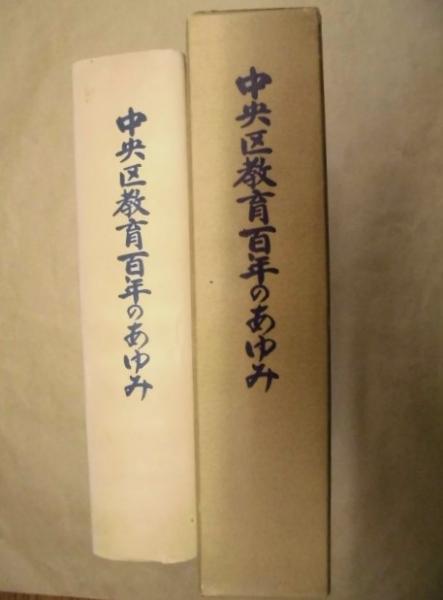 中央区教育百年のあゆみ
中央区教育百年のあゆみ